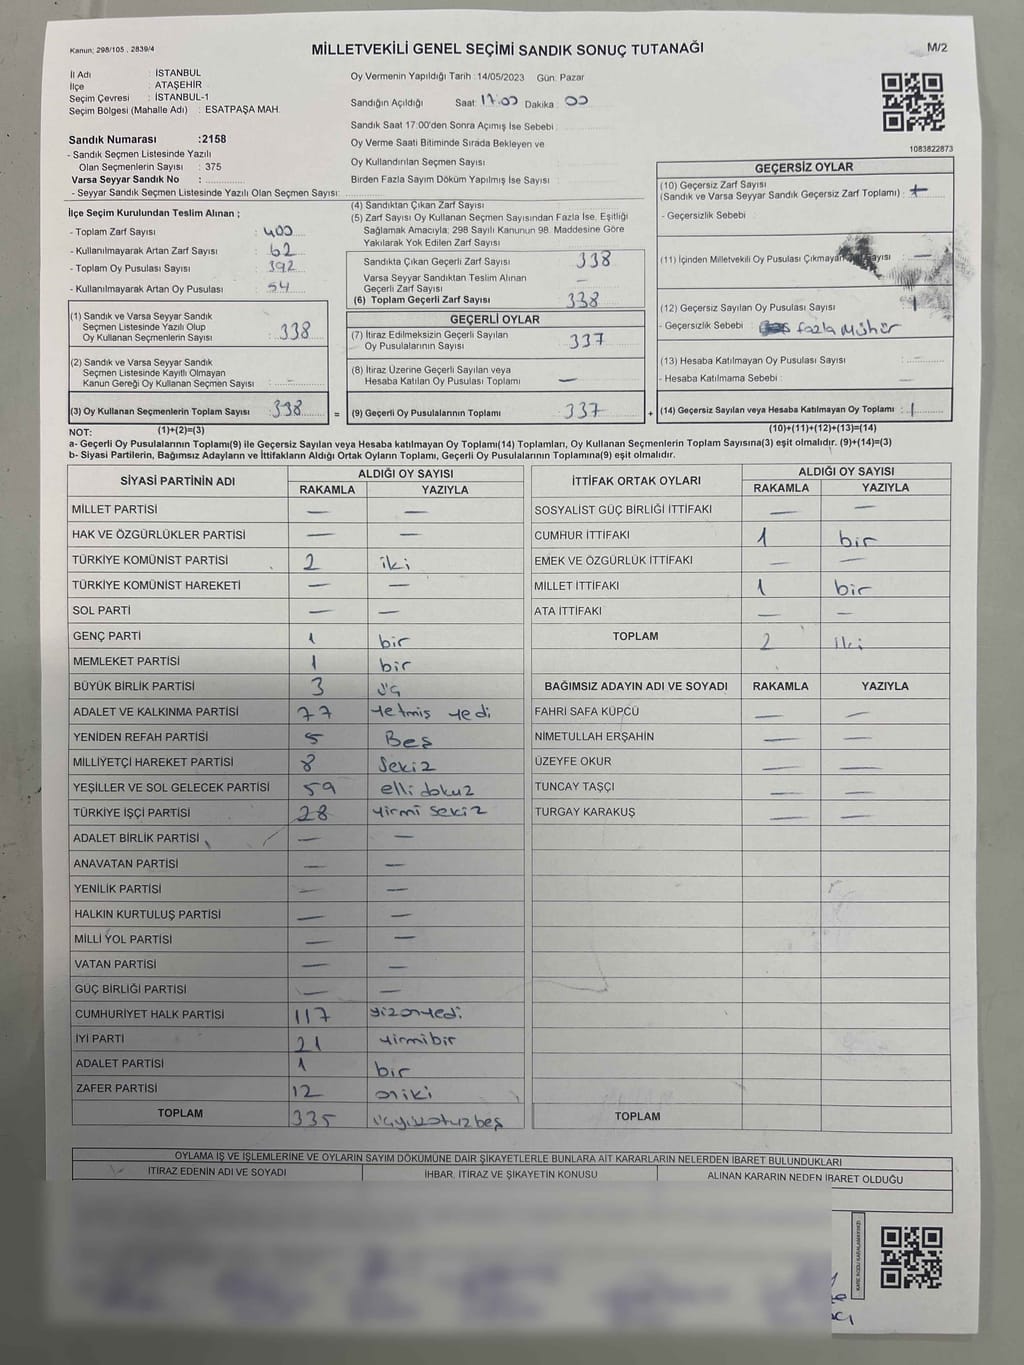 Kanun; 298/105 , 2839/4
MİLLETVEKİLİ GENEL SEÇİMİ SANDIK SONUÇ TUTANAĞI
M/2
İl Adı : İSTANBUL
İlçe : ATAŞEHİR
Seçim Çevresi : İSTANBUL-1
Seçim Bölgesi (Mahalle Adı) : ESATPAŞA MAH.
Sandık Numarası :2158
- Sandık Seçmen Listesinde Yazılı
Olan Seçmenlerin Sayısı : 375
Varsa Seyyar Sandık No :
- Seyyar Sandık Seçmen Listesinde Yazılı Olan Seçmen Sayısı:
Oy Vermenin Yapıldığı Tarih : 14/05/2023 Gün: Pazar
Sandığın Açıldığı Saat: 17.00 Dakika : 00
Sandık Saat 17:00'den Sonra Açımış İse Sebebi :
Oy Verme Saati Bitiminde Sırada Bekleyen ve
Oy Kullandırılan Seçmen Sayısı :
Birden Fazla Sayım Döküm Yapılmış İse Sayısı :
1083822873
İlçe Seçim Kurulundan Teslim Alınan ;
- Toplam Zarf Sayısı : 400
- Kullanılmayarak Artan Zarf Sayısı : 62
- Toplam Oy Pusulası Sayısı : 392
- Kullanılmayarak Artan Oy Pusulası : 54
(1) Sandık ve Varsa Seyyar Sandık
Seçmen Listesinde Yazılı Olup
Oy Kullanan Seçmenlerin Sayısı : 338
(2) Sandık ve Varsa Seyyar Sandık
Seçmen Listesinde Kayıtlı Olmayan
Kanun Gereği Oy Kullanan Seçmen Sayısı : —
(3) Oy Kullanan Seçmenlerin Toplam Sayısı : 338 =
(4) Sandıktan Çıkan Zarf Sayısı :
(5) Zarf Sayısı Oy Kullanan Seçmen Sayısından Fazla İse, Eşitliği
Sağlamak Amacıyla; 298 Sayılı Kanunun 98. Maddesine Göre
Yakılarak Yok Edilen Zarf Sayısı :
Sandıkta Çıkan Geçerli Zarf Sayısı 338
Varsa Seyyar Sandıktan Teslim Alınan
Geçerli Zarf Sayısı : —
(6) Toplam Geçerli Zarf Sayısı 338
GEÇERLİ OYLAR
(7) İtiraz Edilmeksizin Geçerli Sayılan
Oy Pusulalarının Sayısı : 337
(8) İtiraz Üzerine Geçerli Sayılan veya
Hesaba Katılan Oy Pusulası Toplamı : —
(9) Geçerli Oy Pusulalarının Toplamı : 337 +
GEÇERSİZ OYLAR
(10) Geçersiz Zarf Sayısı
(Sandık ve Varsa Seyyar Sandık Geçersiz Zarf Toplamı) :
- Geçersizlik Sebebi :
(11) İçinden Milletvekili Oy Pusulası Çıkmayan —
(12) Geçersiz Sayılan Oy Pusulası Sayısı : 1
- Geçersizlik Sebebi : fazla Mühür
(13) Hesaba Katılmayan Oy Pusulası Sayısı : —
- Hesaba Katılmama Sebebi : —
(14) Geçersiz Sayılan veya Hesaba Katılmayan Oy Toplamı : 1
NOT: (1)+(2)=(3) (10)+(11)+(12)+(13)=(14)
a- Geçerli Oy Pusulalarının Toplamı(9) ile Geçersiz Sayılan veya Hesaba katılmayan Oy Toplamı(14) Toplamları, Oy Kullanan Seçmenlerin Toplam Sayısına(3) eşit olmalıdır. (9)+(14)=(3)
b- Siyasi Partilerin, Bağımsız Adayların ve İttifakların Aldığı Ortak Oyların Toplamı, Geçerli Oy Pusulalarının Toplamına(9) eşit olmalıdır.
SİYASİ PARTİNİN ADI ALDIĞI OY SAYISI
RAKAMLA YAZIYLA
MİLLET PARTİSİ — —
HAK VE ÖZGÜRLÜKLER PARTİSİ — —
TÜRKİYE KOMÜNİST PARTİSİ 2 iki
TÜRKİYE KOMÜNİST HAREKETİ — —
SOL PARTİ — —
GENÇ PARTİ 1 bir
MEMLEKET PARTİSİ 1 bir
BÜYÜK BİRLİK PARTİSİ 3 üç
ADALET VE KALKINMA PARTİSİ 77 yetmiş yedi
YENİDEN REFAH PARTİSİ 5 Beş
MİLLİYETÇİ HAREKET PARTİSİ 8 sekiz
YEŞİLLER VE SOL GELECEK PARTİSİ 59 elli dokuz
TÜRKİYE İŞÇİ PARTİSİ 28 yirmi sekiz
ADALET BİRLİK PARTİSİ — —
ANAVATAN PARTİSİ — —
YENİLİK PARTİSİ — —
HALKIN KURTULUŞ PARTİSİ — —
MİLLİ YOL PARTİSİ — —
VATAN PARTİSİ — —
GÜÇ BİRLİĞİ PARTİSİ — —
CUMHURİYET HALK PARTİSİ 117 yüzonyedi
İYİ PARTİ 21 yirmibir
ADALET PARTİSİ 1 bir
ZAFER PARTİSİ 12 oniki
TOPLAM 335 üçyüzotuzbeş
İTTİFAK ORTAK OYLARI ALDIĞI OY SAYISI
RAKAMLA YAZIYLA
SOSYALİST GÜÇ BİRLİĞİ İTTİFAKI — —
CUMHUR İTTİFAKI 1 bir
EMEK VE ÖZGÜRLÜK İTTİFAKI — —
MİLLET İTTİFAKI 1 bir
ATA İTTİFAKI — —
TOPLAM 2 iki
BAĞIMSIZ ADAYIN ADI VE SOYADI RAKAMLA YAZIYLA
FAHRİ SAFA KÜPCÜ — —
NİMETULLAH ERŞAHİN — —
ÜZEYFE OKUR — —
TUNCAY TAŞÇI — —
TURGAY KARAKUŞ — —
TOPLAM
OYLAMA İŞ VE İŞLEMLERİNE VE OYLARIN SAYIM DÖKÜMÜNE DAİR ŞİKAYETLERLE BUNLARA AİT KARARLARIN NELERDEN İBARET BULUNDUKLARI
İTİRAZ EDENİN ADI VE SOYADI İHBAR, İTİRAZ VE ŞİKAYETİN KONUSU ALINAN KARARIN NEDEN İBARET OLDUĞU